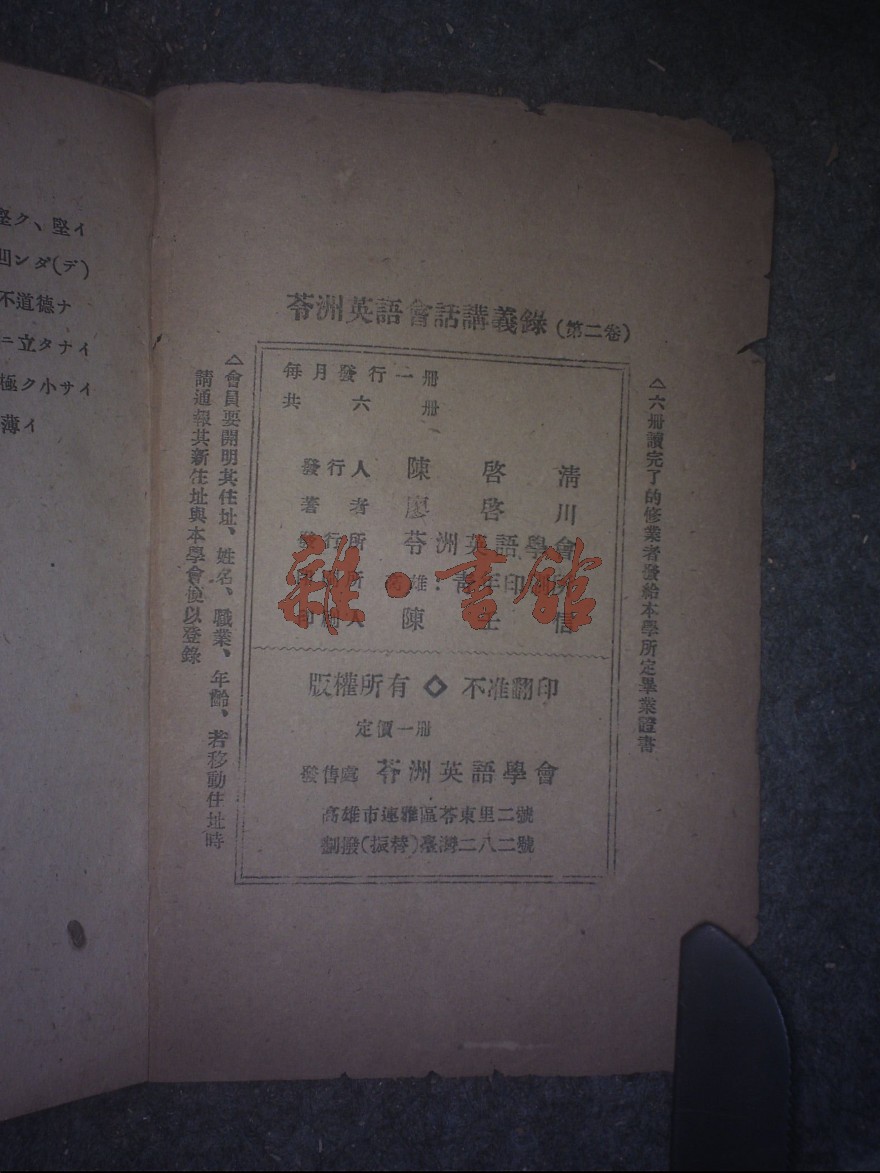 堅ク、堅イ
凹ンダ(デ)
不道德ナ
ニ立タナイ
極ク小サイ
薄イ
苓洲英語會話講義錄(第二卷)
△六册讀完了的修業者發給本學所定畢業證書
每月發行一册
共六册
發行人 陳啓清
著者 廖啓川
發行所 苓洲英語學會
印刷所 高雄·青年印刷所
印刷人 陳王信
雜·書館
版權所有◇不准翻印
定價一册
發售處 苓洲英語學會
高雄市連雅區苓東里二號
劃撥(振替)臺灣二八二號
△會員要開明其住址、姓名、職業、年齡、若移動住址時
請通報其新住址與本學會慎以登錄